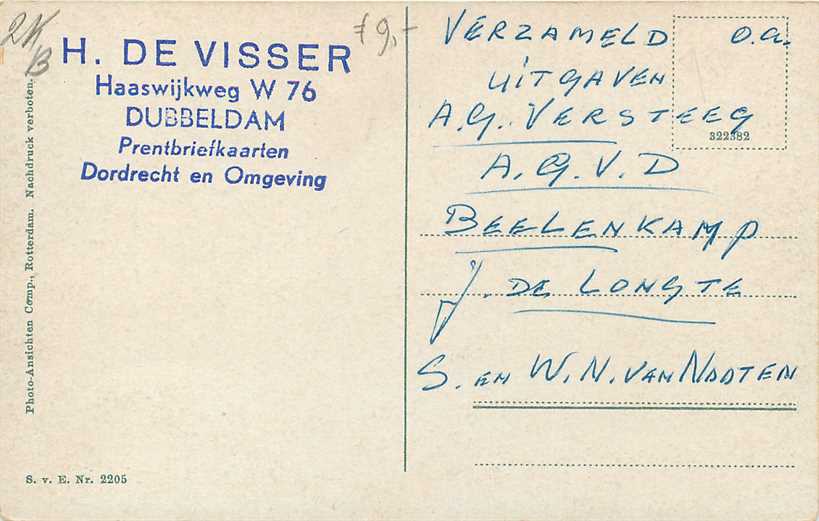 H. DE VISSER
Haaswijkweg W 76
DUBBELDAM
Prentbriefkaarten
Dordrecht en Omgeving
9,-
VERZAMELD o.a.
UITGAVEN
A.G. VERSTEEG
322382
A.G.V.D
BEELENKAMP
J. DE LONGTE
S. EN W.N. VAN NOOTEN
Photo-Ansichten Comp., Rotterdam. Nachdruck verboten.
S. v. E. Nr. 2205